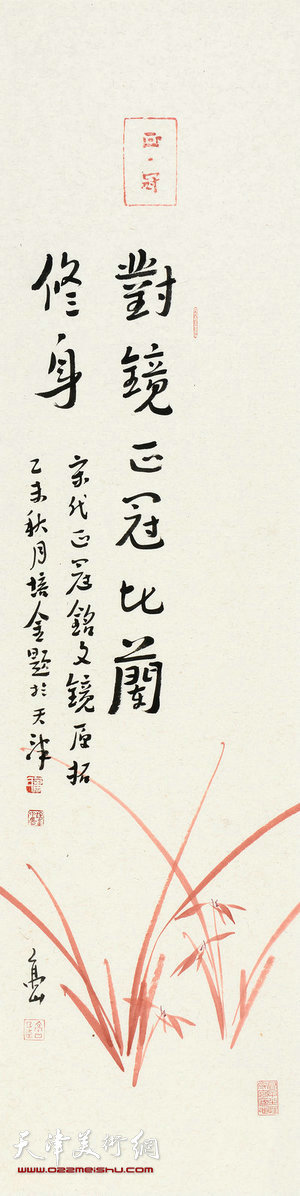 正·冠
對鏡正冠比蘭
修身
宋代正冠銘文鏡原拓
乙未秋月培金題於天津
天津美術網
www.022meishu.com